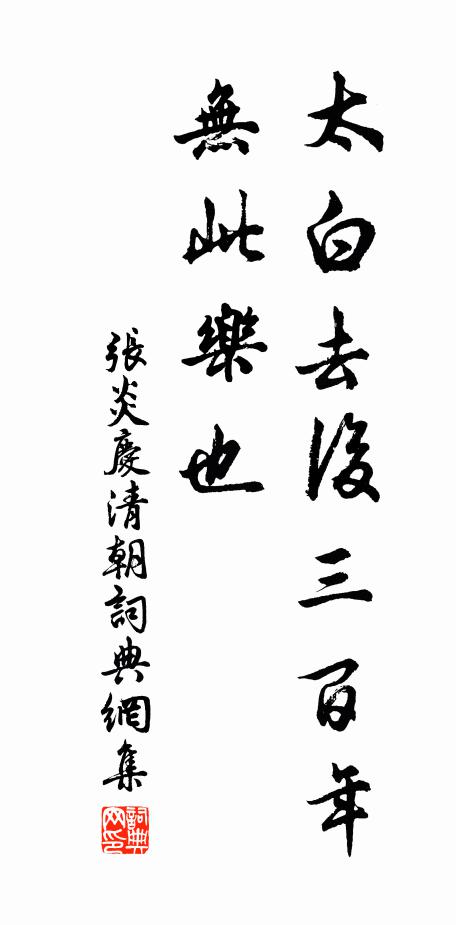 太白去後三百年
無此樂也
張炎慶清朝詞典網集
詞典
网印